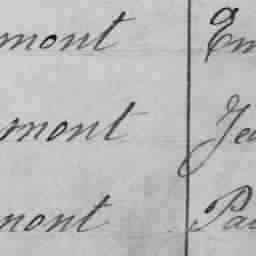 mont Em
mont Jea
mont Pau